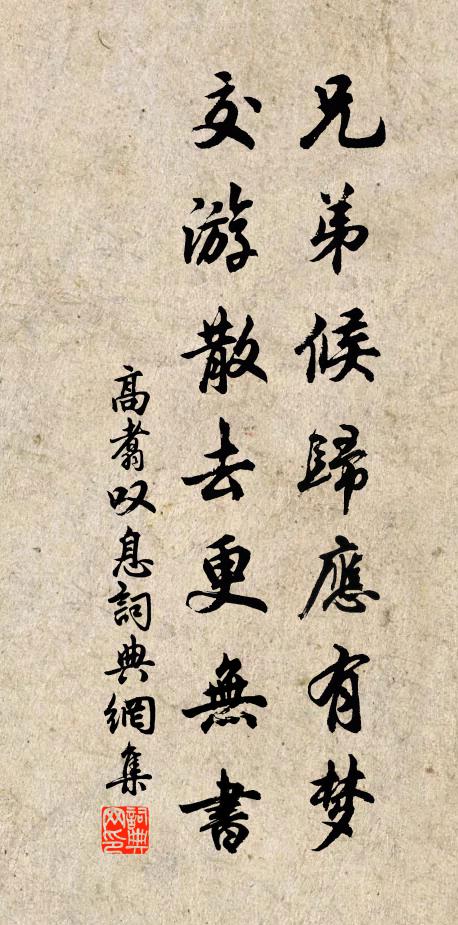 兄弟候歸應有梦
交游散去更無書
高翥叹息詞典網集
詞典网印